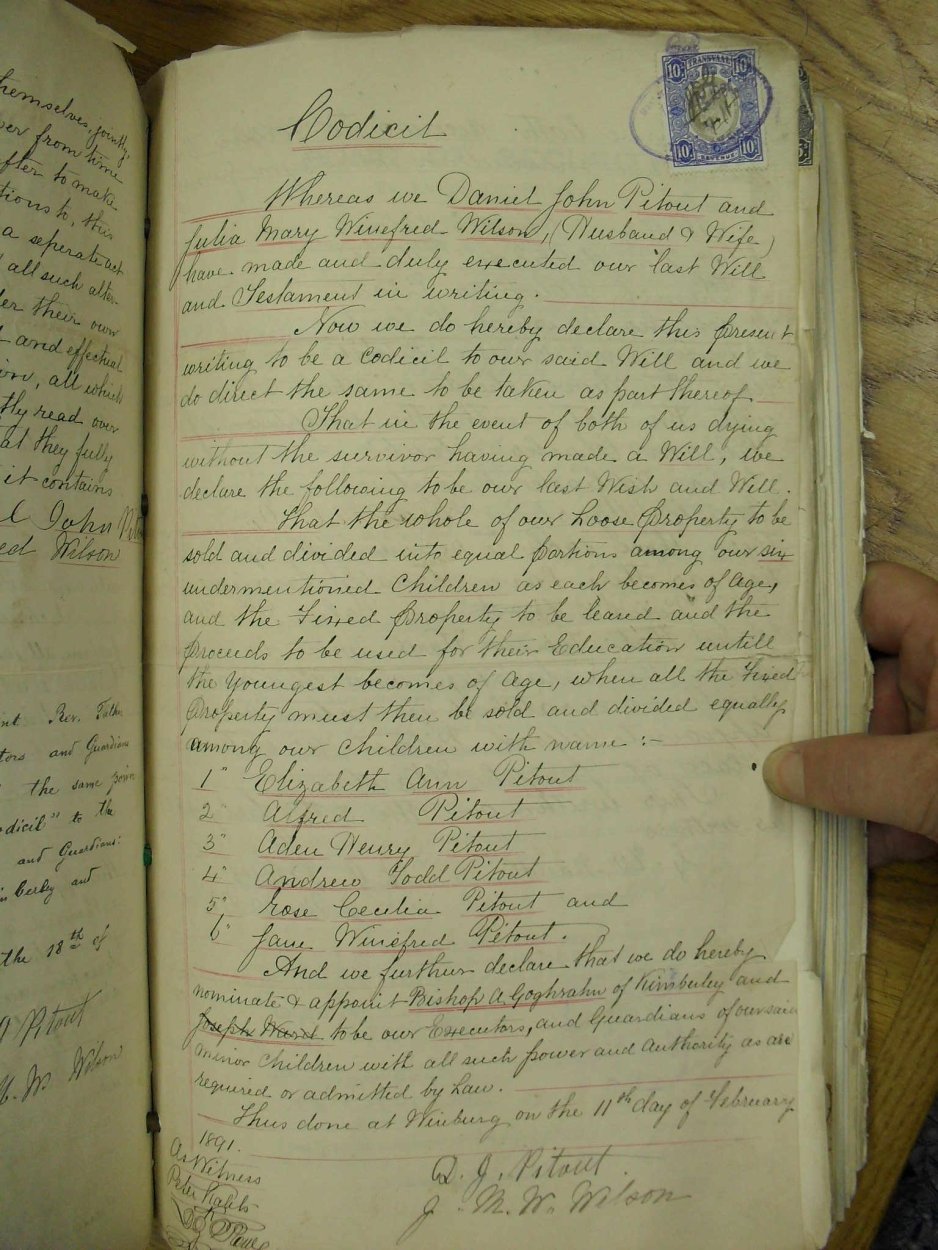 hemselves, jointly
er from time
fter to make
tions to, this
a seperate act
all such alter-
er their own
and effectual
ion, all which
tly read over
at they fully
it contains
l John Pito
ed Wilson
Rev. Father
tors and Guardians
the same
odicil" to the
and Guardians:
mberley and
the 18th of
Pitout
M. W. Wilson
Codicil
10/- TRANSVAAL 10/-
10/- REVENUE 10/-
Whereas we Daniel John Pitout and
Julia Mary Winefred Wilson, (Husband & Wife)
have made and duly executed our last Will
and Testament in writing.
Now we do hereby declare this present
writing to be a codicil to our said Will and we
do direct the same to be taken as part thereof
That in the event of both of us dying
without the survivor having made a Will, we
declare the following to be our last Wish and Will.
That the whole of our Loose Property to be
sold and divided into equal portions among our six
undermentioned Children as each becomes of Age,
and the Fixed Property to be leased and the
Proceeds to be used for their Education untill
the Youngest becomes of Age, when all the Fixed
Property must then be sold and divided equally
among our children with name :-
1" Elizabeth Ann Pitout
2" Alfred Pitout
3" Aden Henry Pitout
4" Andrew Todd Pitout
5" Rose Cecilia Pitout and
6" Jane Winifred Pitout.
And we further declare that we do hereby
nominate & appoint Bishop A Goghrahn of Kimberley and
Joseph Ward to be our Executors, and Guardians of our said
minor Children with all such power and Authority as are
required or admitted by Law.
Thus done at Winburg on the 11th day of February
1891.
As Witness
Peter
D. J. Pitout.
J. M. W. Wilson